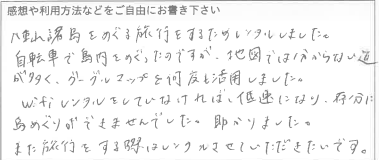 感想や利用方法などをご自由にお書き下さい
八重山諸島をめぐる旅行をするためレンタルしました。
自転車で島内をめぐったのですが、地図では分からない道
が多く、グーグルマップを何度も活用しました。
Wifiレンタルをしていなければ、低速になり、存分に
島めぐりができませんでした。助かりました。
また旅行をする際はレンタルさせていただきたいです。